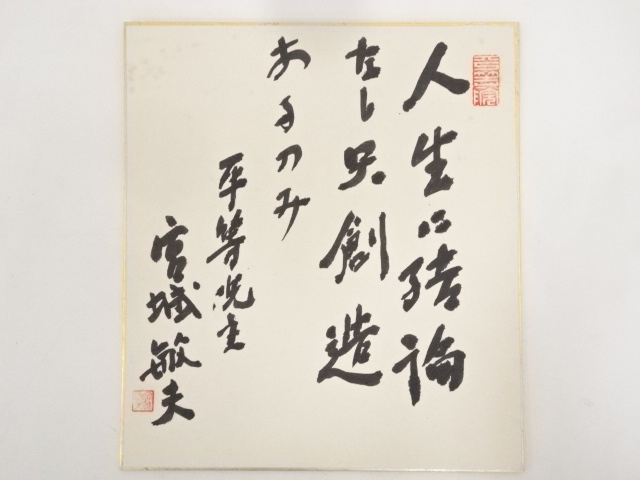 人生に結論
なし只創造
あるのみ
平等
宮城敏夫